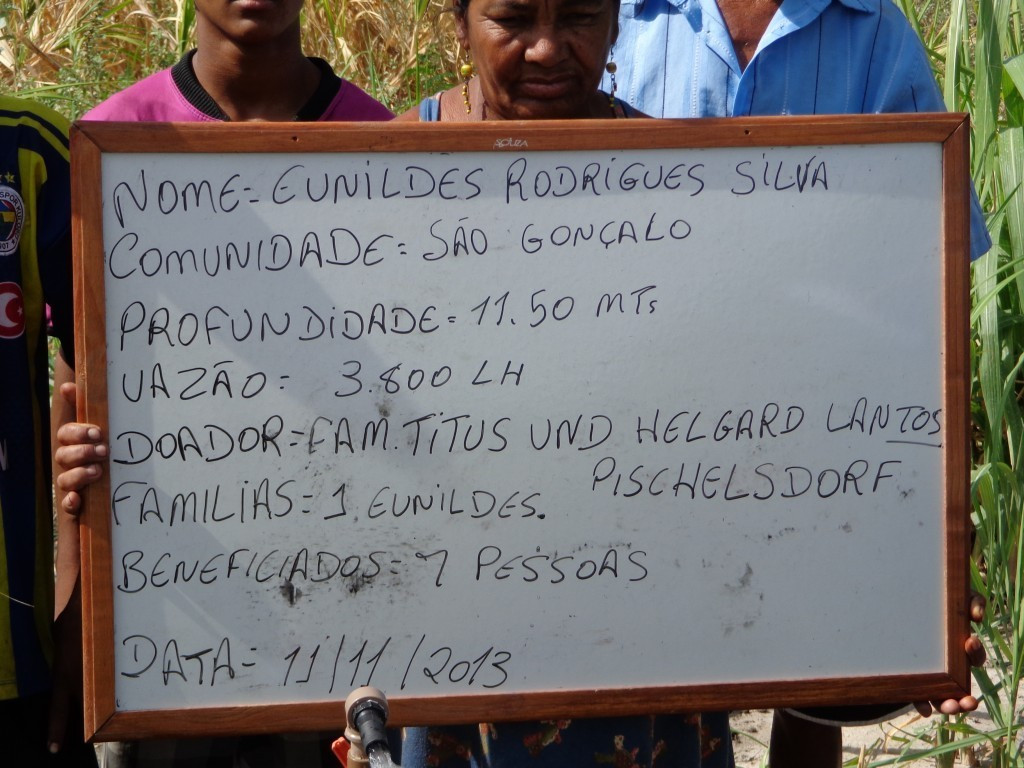 NOME= EUNILDES RODRIGUES SILVA
COMUNIDADE= SÃO GONÇALO
PROFUNDIDADE= 11.50 MTs
VAZÃO= 3.800 LH
DOADOR= FAM. TITUS UND HELGARD LANTOS
PISCHELSDORF
FAMILIAS= 1 EUNILDES.
BENEFICIADOS= 7 PESSOAS
DATA= 11/11/2013